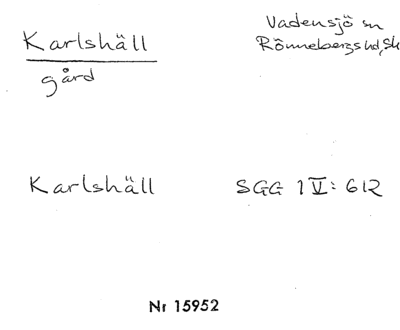 Karlshäll
gård
Vadensjö sn
Rönnebergs hd, Sk
Karlshäll
SGG 1 V: 612
Nr 15952